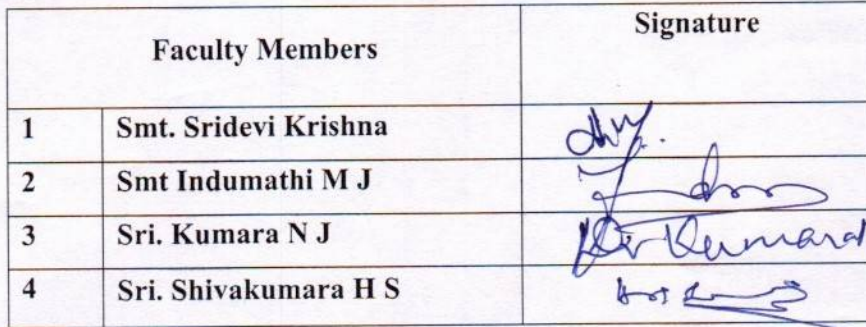 Faculty Members Signature
1 Smt. Sridevi Krishna
2 Smt Indumathi M J
3 Sri. Kumara N J Kumara
4 Sri. Shivakumara H S